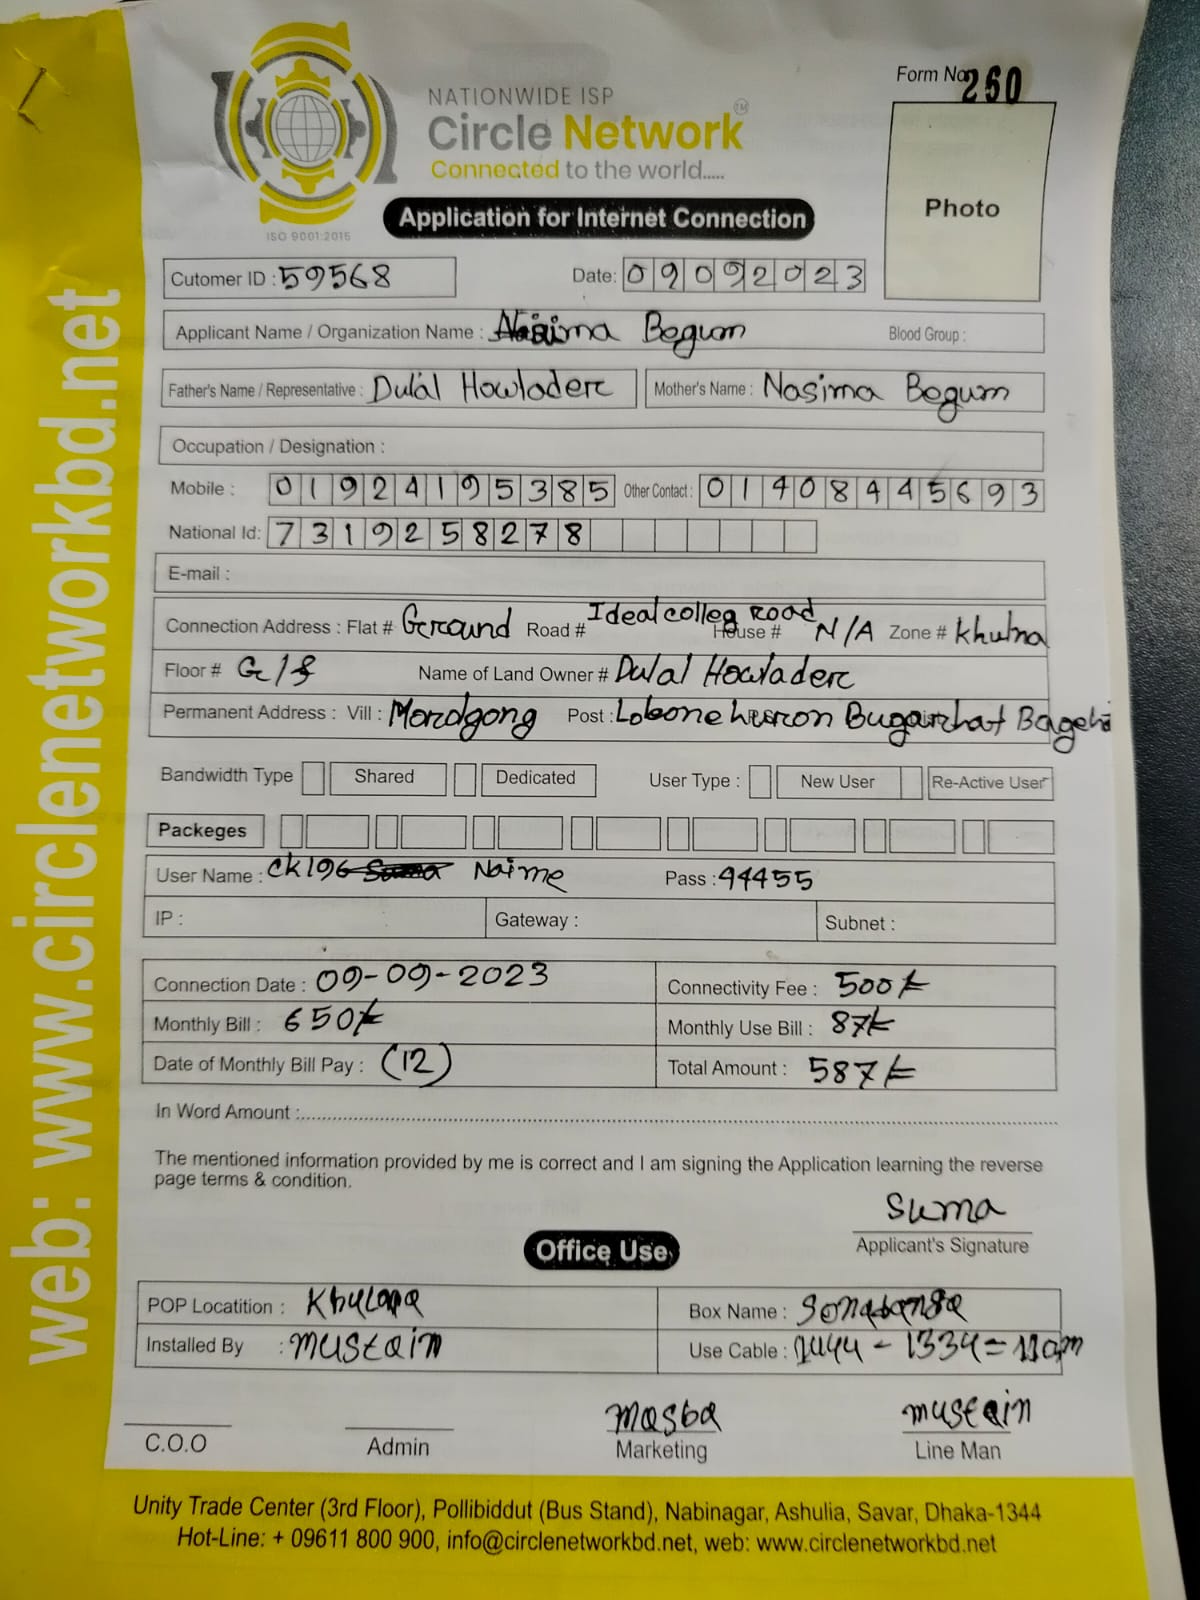 Form No. 260
NATIONWIDE ISP
Circle Network™
Connected to the world.....
ISO 9001:2015
Application for Internet Connection
Photo
Cutomer ID : 59568 Date: 09092023
Applicant Name / Organization Name : Begum Blood Group :
Father's Name / Representative : Dulal Howlader Mother's Name : Nasima Begum
Occupation / Designation :
Mobile : 01924195385 Other Contact : 01408445693
National Id: 7319258278
E-mail :
Connection Address : Flat # Ground Road # Ideal colleg Road House # N/A Zone # Khulna
Floor # Name of Land Owner # Dulal Howlader
Permanent Address : Vill : Mordgong Post :
Bandwidth Type Shared Dedicated User Type : New User Re-Active User
Packeges
User Name : ck196 Naime Pass : 94455
IP : Gateway : Subnet :
Connection Date : 09-09-2023 Connectivity Fee : 500/=
Monthly Bill : 650/= Monthly Use Bill : 87/=
Date of Monthly Bill Pay : (12) Total Amount : 587/=
In Word Amount :
The mentioned information provided by me is correct and I am signing the Application learning the reverse
page terms & condition.
Suma
Applicant's Signature
Office Use
POP Locatition : Khulana Box Name :
Installed By : mustain Use Cable : 1444 - 1334 = 110m
Masba mustain
C.O.O Admin Marketing Line Man
Unity Trade Center (3rd Floor), Pollibiddut (Bus Stand), Nabinagar, Ashulia, Savar, Dhaka-1344
Hot-Line: + 09611 800 900, info@circlenetworkbd.net, web: www.circlenetworkbd.net
web: www.circlenetworkbd.net